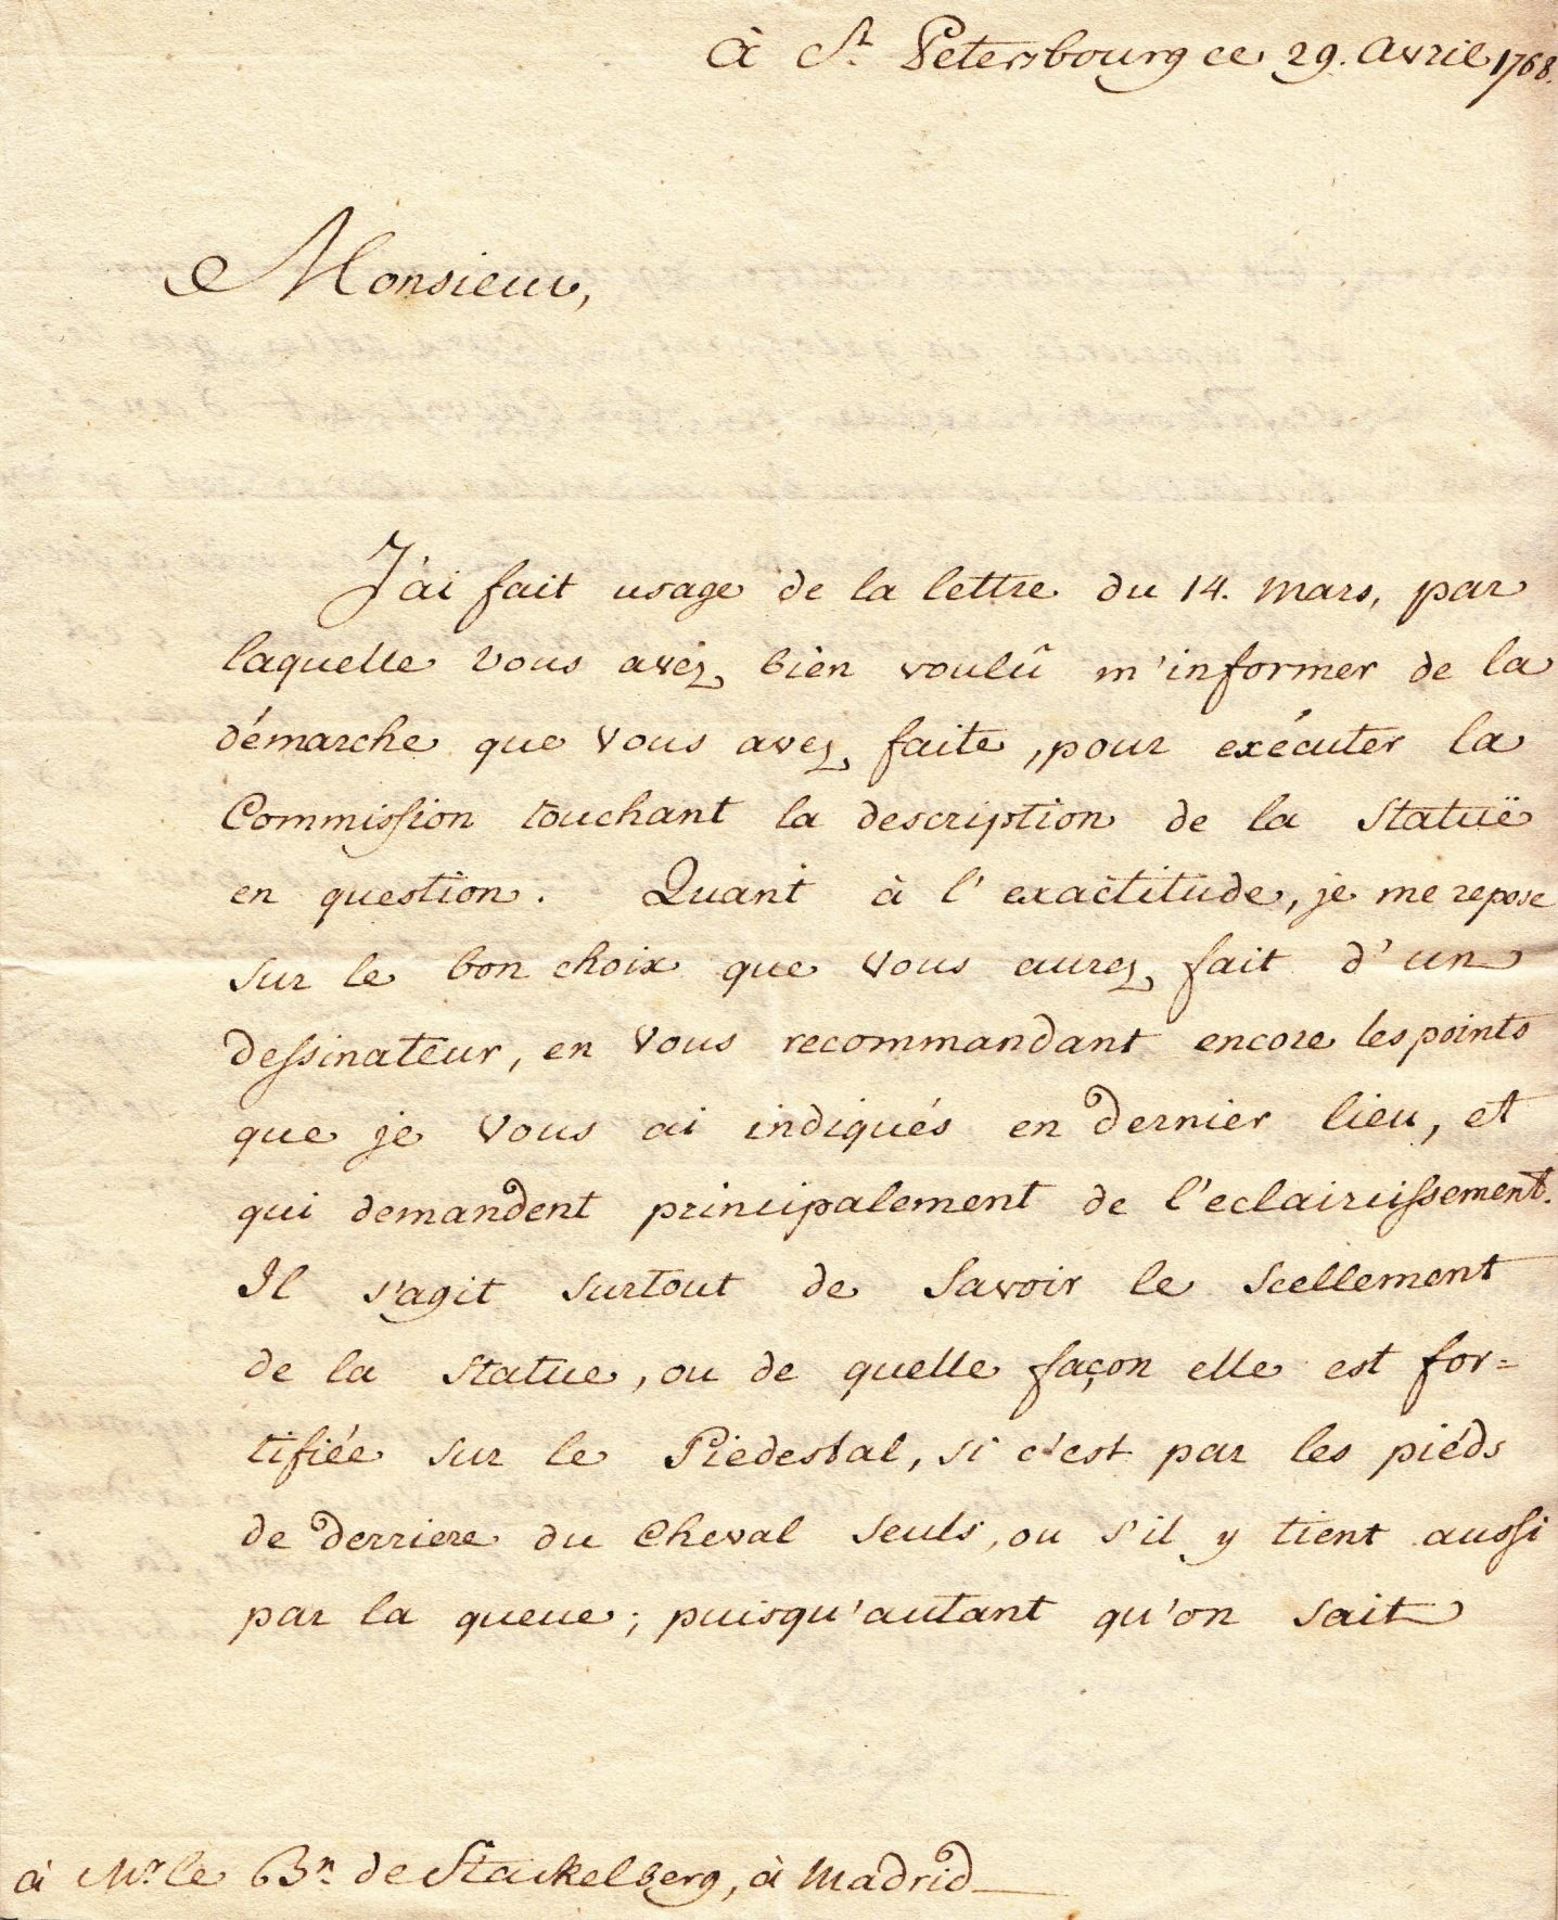 à St. Petersbourg ce 29. Avril 1768.
Monsieur,
J'ai fait usage de la lettre du 14. Mars, par
laquelle vous avéz bien voulû m'informer de la
démarche que Vous avez faite, pour exécuter la
Commission touchant la description de la Statuë
en question. Quant à l'exactitude, je me repose
sur le bon choix que Vous aurez fait d'un
dessinateur, en Vous recommandant encore les points
que je Vous ai indiqués en dernier lieu, et
qui demandent principalement de l'eclaircissement.
Il s'agit surtout de Savoir le Scellement
de la Statue, ou de quelle façon elle est for=
tifiée sur le Piedestal, si c'est par les piéds
de derriere du Cheval Seuls, ou s'il y tient aussi
par la queue; puisqu'autant qu'on sait
à Mr. le Bn. de Stackelberg, à Madrid